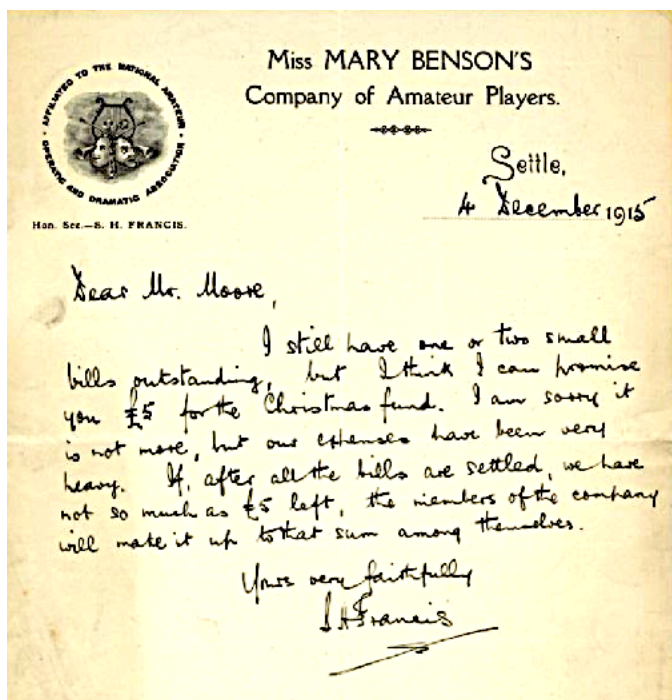 Miss MARY BENSON'S
Company of Amateur Players.
AFFILIATED TO THE NATIONAL AMATEUR
OPERATIC AND DRAMATIC ASSOCIATION
Hon. Sec.—S. H. FRANCIS.
Settle,
4 December 1915
Dear Mr. Moore,
I still have one or two small
bills outstanding, but I think I can promise
you £5 for the Christmas fund. I am sorry it
is not more, but our expenses have been very
heavy. If, after all the bills are settled, we have
not so much as £5 left, the members of the company
will make it up to that sum among themselves.
Yours very faithfully
S H Francis